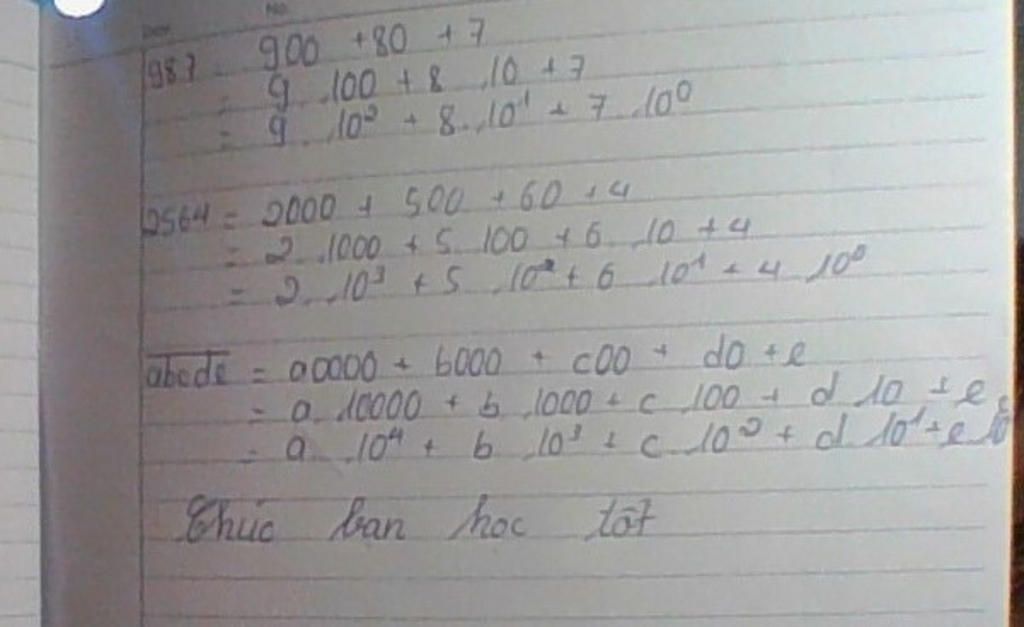 No.
987 = 900 + 80 + 7
= 9 . 100 + 8 . 10 + 7
= 9 . 10² + 8 . 10¹ + 7 . 10⁰
2564 = 2000 + 500 + 60 + 4
= 2 . 1000 + 5 . 100 + 6 . 10 + 4
= 2 . 10³ + 5 . 10² + 6 . 10¹ + 4 . 10⁰
a̅b̅c̅d̅e̅ = a0000 + b000 + c00 + d0 + e
= a . 10000 + b . 1000 + c . 100 + d . 10 + e
= a . 10⁴ + b . 10³ + c . 10² + d . 10¹ + e . 10
Chúc bạn học tốt